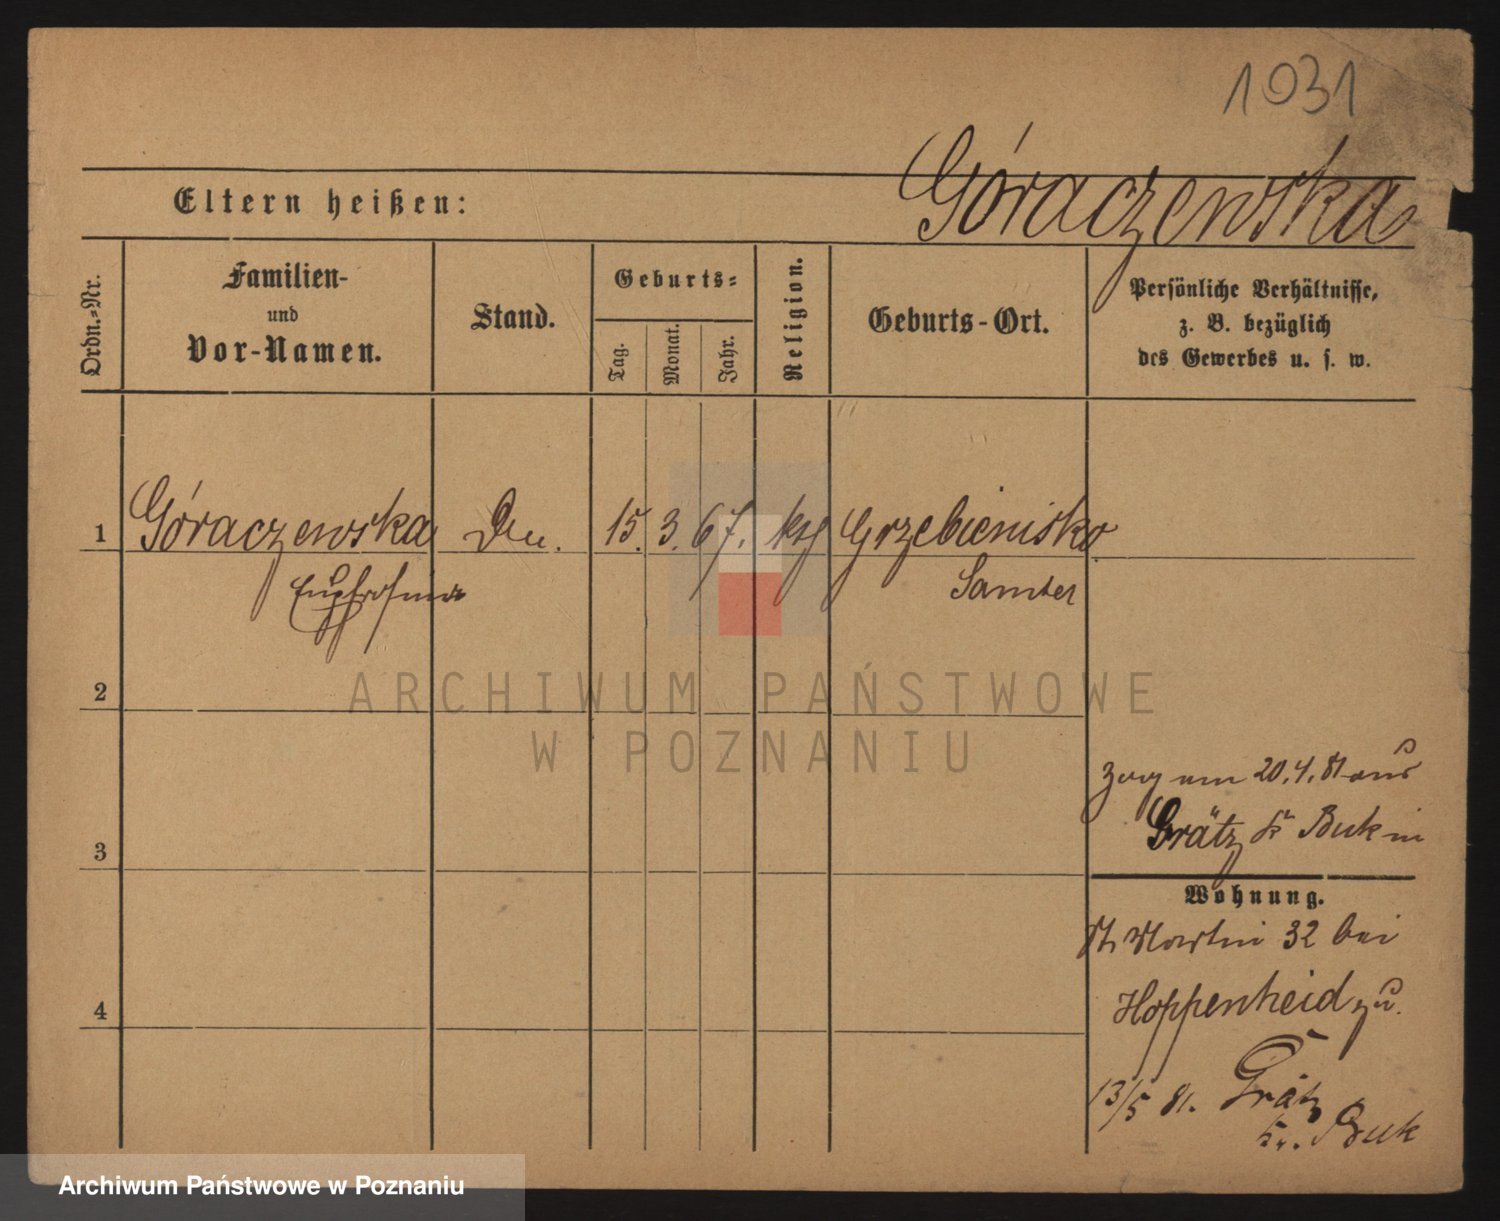 1031
Góraczewska
Eltern heißen:
Ordn.-Nr.
Familien-
und
Vor-Namen.
Stand.
Geburts-
Tag.
Monat.
Jahr.
Religion.
Geburts-Ort.
Persönliche Verhältnisse,
z. B. bezüglich
des Gewerbes u. s. w.
1 Góraczewska 15. 3. 67. Grzebienisko
Euphrosina Samter
2
ARCHIWUM PAŃSTWOWE
W POZNANIU
zog am 20.4.81 aus
3 Grätz Kr Buk in
Wohnung.
St Martin 32 bei
4 Hoppenheid zu.
13/5 81. Grätz
Kr. Buk
Archiwum Państwowe w Poznaniu